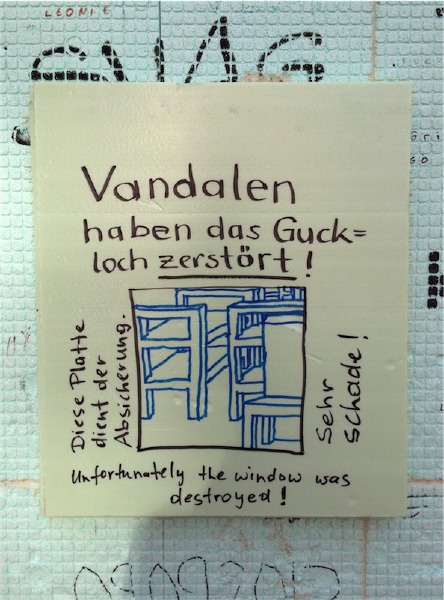 LEONIE
Vandalen
haben das Guck=
loch zerstört!
Diese Platte
dient der
Absicherung.
Sehr
schade!
Unfortunately the window was
destroyed!